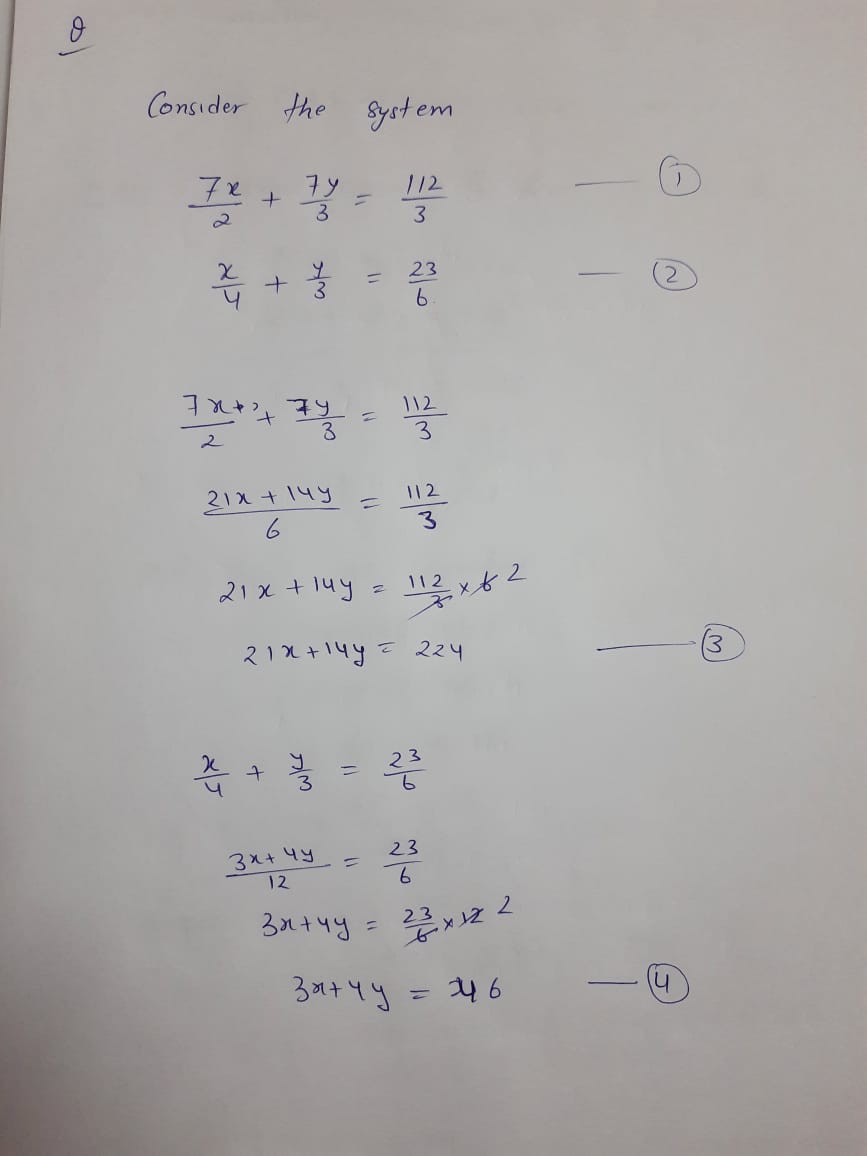 Q
Consider the system
7x/2 + 7y/3 = 112/3 — ①
x/4 + y/3 = 23/6 — ②
7x/2 + 7y/3 = 112/3
(21x + 14y)/6 = 112/3
21x + 14y = 112/3 × 6 2
21x + 14y = 224 — ③
x/4 + y/3 = 23/6
(3x + 4y)/12 = 23/6
3x + 4y = 23/6 × 12 2
3x + 4y = 46 — ④